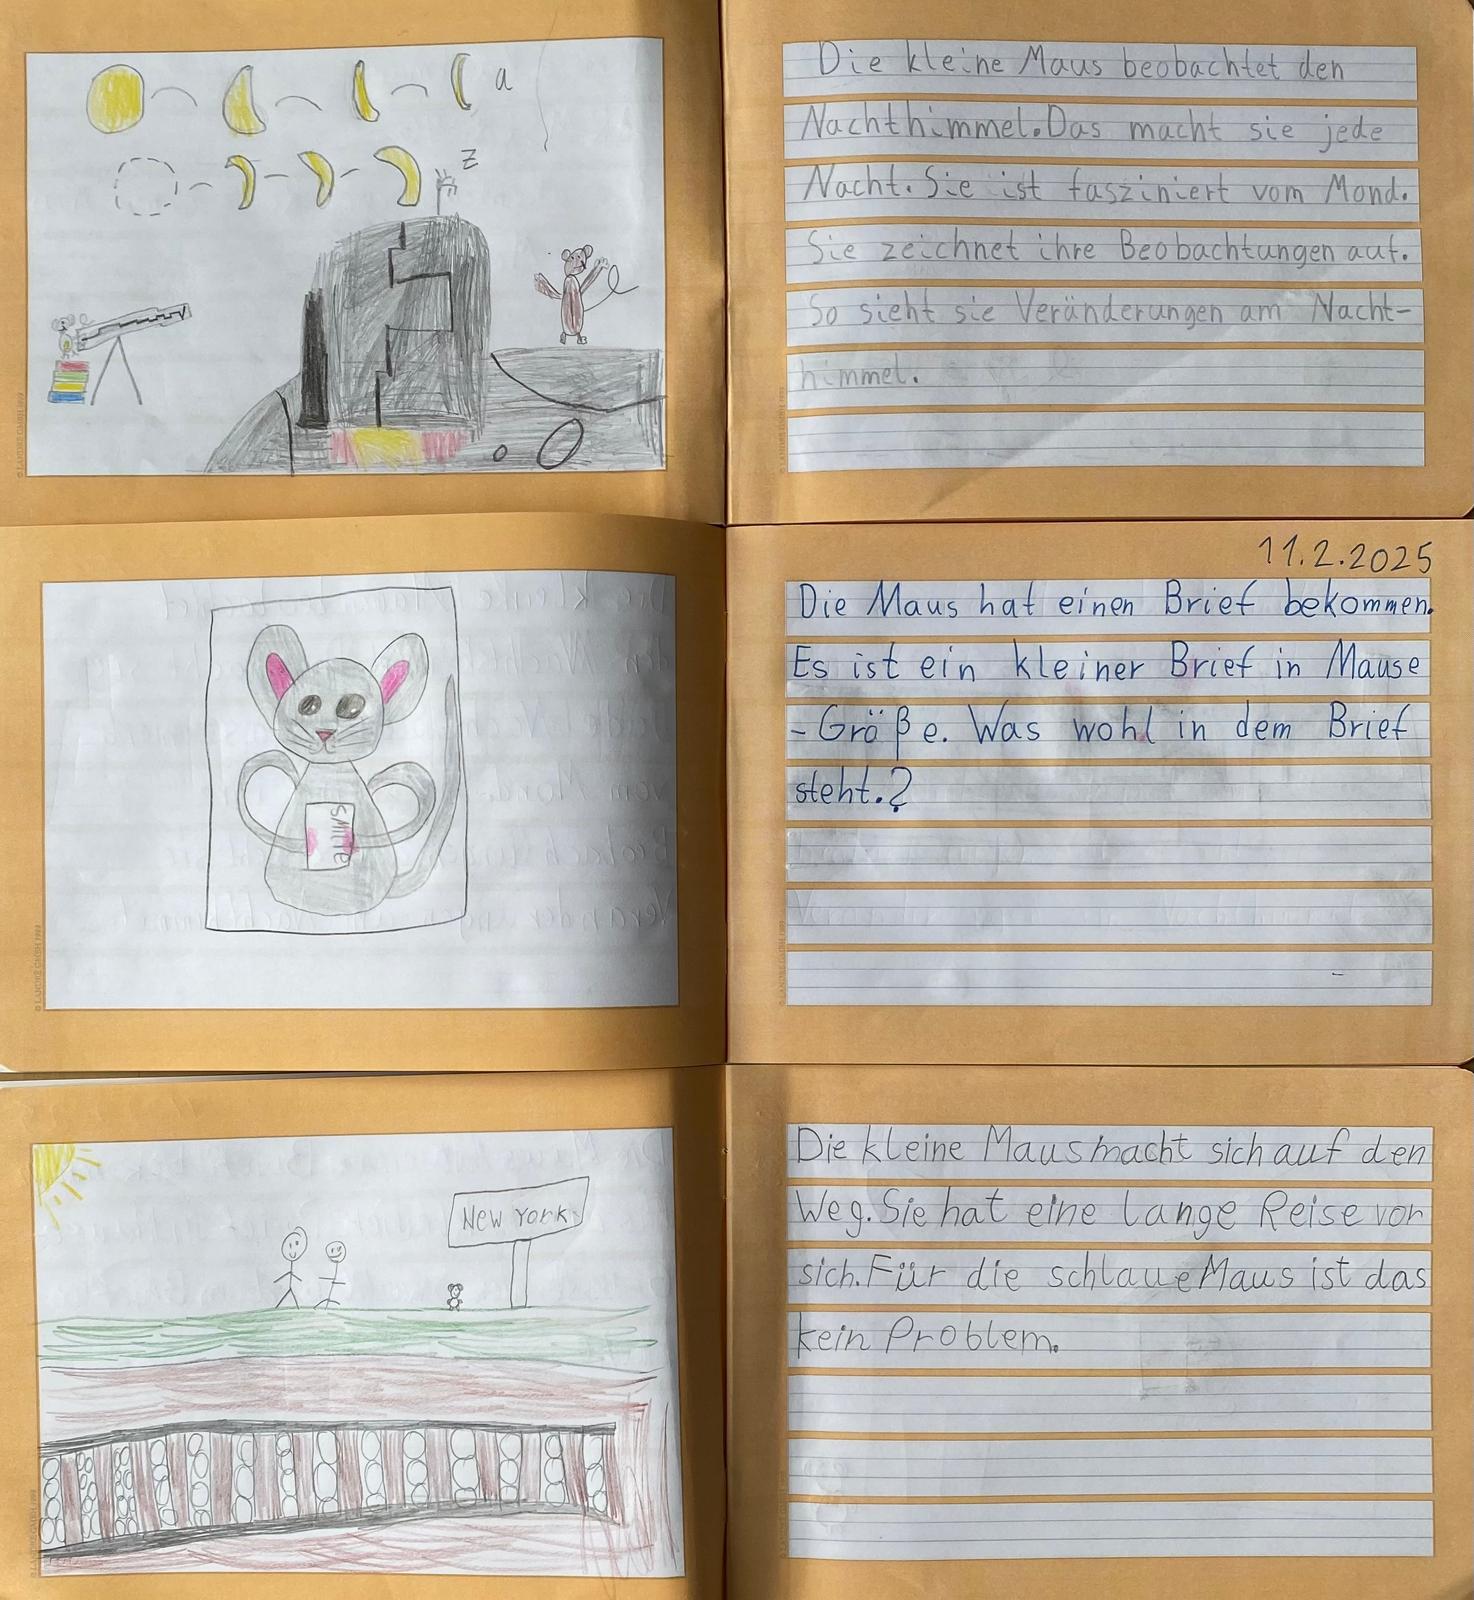 a
z
Die kleine Maus beobachtet den
Nachthimmel. Das macht sie jede
Nacht. Sie ist fasziniert vom Mond.
Sie zeichnet ihre Beobachtungen auf.
So sieht sie Veränderungen am Nacht-
himmel.
© LANDRÉ GMBH 1999
11.2.2025
Die Maus hat einen Brief bekommen.
Es ist ein kleiner Brief in Mause
- Größe. Was wohl in dem Brief
steht.?
© LANDRÉ GMBH 1999
New York
Die kleine Maus macht sich auf den
Weg. Sie hat eine lange Reise vor
sich. Für die schlaue Maus ist das
kein Problem.